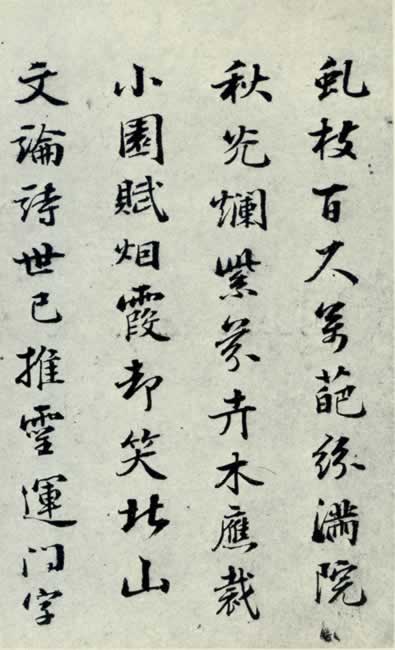 虬枝百尺萬葩紛滿院
秋光爛紫芬卉木應裁
小園賦烟霞却笑北山
文論詩世已推靈運問字